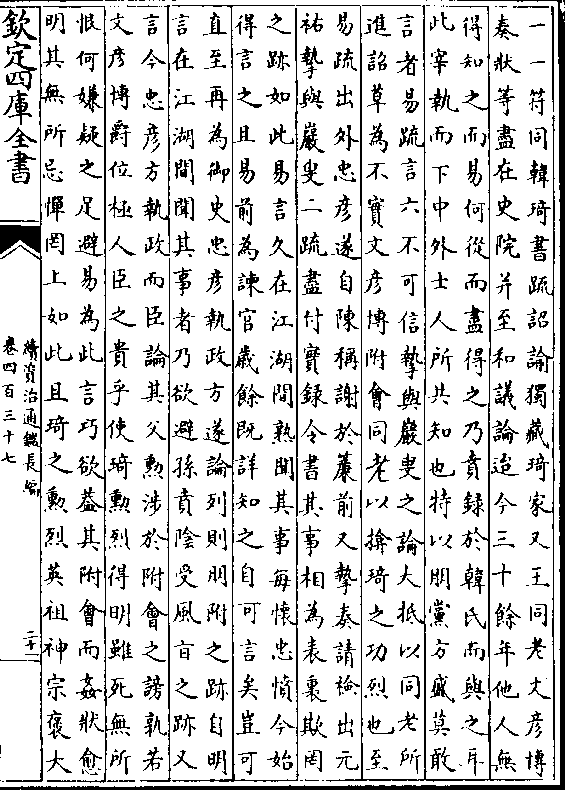 一一符同韓琦書疏詔論獨藏琦家又王同老文彦博
奏狀等盡在史院并至和議論迨今三十餘年他人無
得知之而易何從而盡得之乃賁録於韓氏而與之耳
此宰執而下中外士人所共知也特以朋黨方盛莫敢
言者易疏言六不可信摯與巖叟之論大抵以同老所
進詔草為不實文彦博附會同老以揜琦之功烈也至
易疏出外忠彦遂自陳稱謝於簾前又摯奏請檢出元
祐摯與巖叟二疏盡付實録令書其事相為表裏欺罔
之跡如此易言久在江湖間熟聞其事每懷忠憤今始
得言之且易前為諫官歲餘既詳知之自可言矣豈可
直至再為御史忠彦執政方遂論列則朋附之跡自明
言在江湖間聞其事者乃欲避孫賁陰受風㫖之跡又
言今忠彦方執政而臣論其父勲涉於附會之謗執若
文彦博爵位極人臣之貴乎使琦勲烈得明雖死無所
恨何嫌疑之足避易為此言巧欲葢其附會而姦狀愈
明其無所忌憚罔上如此且琦之勲烈英祖神宗褒大
欽定四庫全書
續資治通鑑長編
卷四百三十七
二十